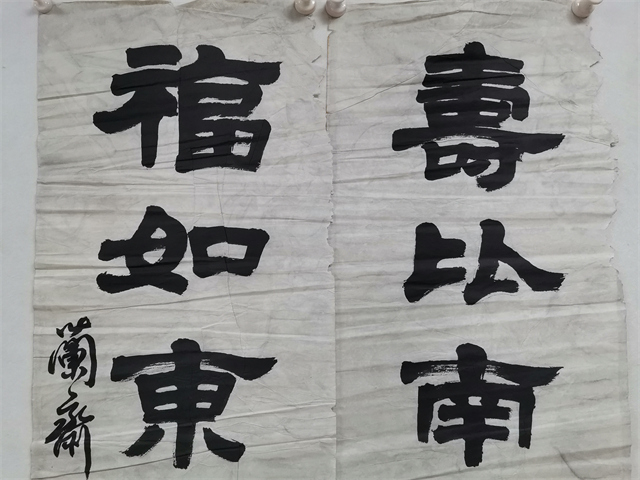 壽比南
福如東
蘭齋